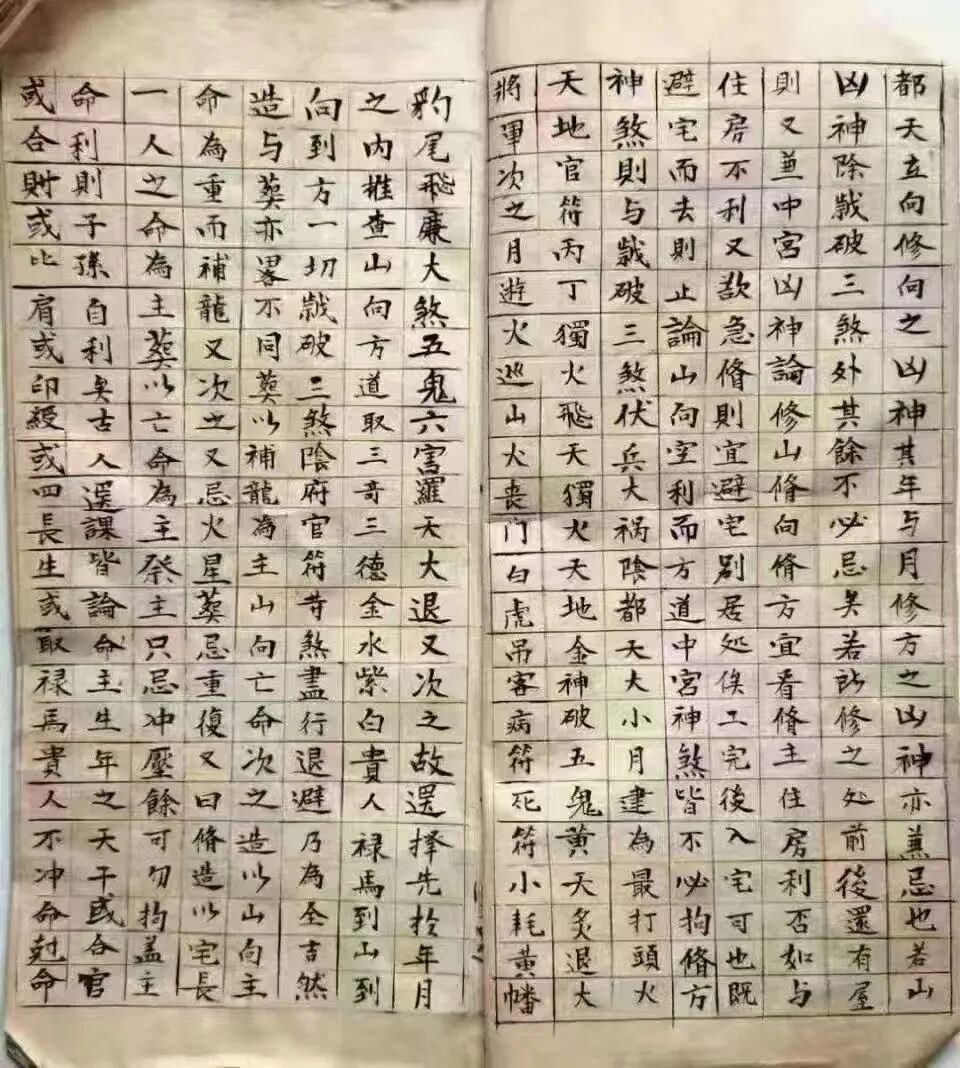 都天立向修向之凶神其年与月修方之凶神亦兼忌也若山
凶神除歲破三煞外其餘不必忌矣若所修之処前後還有屋
則又兼中宮凶神論修山脩向脩方宜看脩主住房利否如与
住房不利又欲急脩則宜避宅別居処俟工完後入宅可也既
避宅而去則止論山向空利而方道中宮神煞皆不必拘脩方
神煞則与歲破三煞伏兵大祸陰都天大小月建為最打頭火
天地官符丙丁獨火飛天獨火天地金神破五鬼黄天炙退大
將軍次之月遊火巡山火丧门白虎吊客病符死符小耗黄幡
豹尾飛廉大煞五鬼六害羅天大退又次之故選择先扵年月
之内推查山向方道取三奇三德金水紫白貴人禄馬到山到
向到方一切歲破三煞陰府官符等煞盡行退避乃為全吉然
造与葬亦畧不同葬以補龍為主山向亡命次之造以山向主
命為重而補龍又次之又忌火星葬忌重復又曰脩造以宅長
一人之命為主葬以亡命為主祭主只忌冲壓餘可勿拘盖主
命利則子孫自利矣古人選課皆論命主生年之天干或合官
或合財或比肩或印綬或四長生或取禄馬貴人不冲命尅命